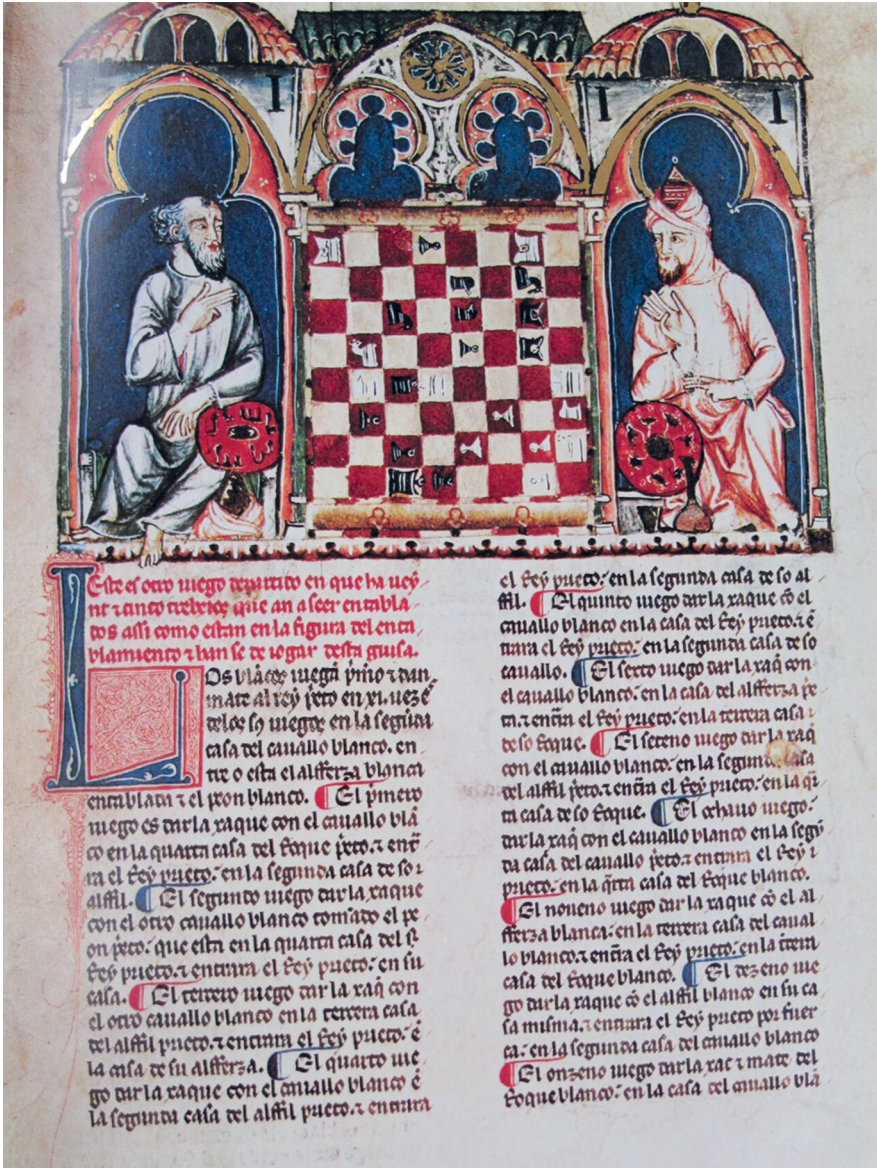 Este es otro iuego departido en que ha uey
nt ⁊ cinco trebeios que an a seer entabla
dos assi como estan en la figura del enta
blamiento ⁊ han se de iogar desta guisa.
LOs blãcos iuegã p̃mero ⁊ dan
mate al rey p̃eto en xi. uezes
delos sos iuegos en la segũda
casa del cauallo blanco. en
tre o esta el alfferza blanca
entablada ⁊ el peon blanco. ¶ El p̃mero
iuego es dar la xaque con el cauallo blã
co en la quarta casa del Roque p̃eto. ⁊ ent̃
ra el Rey prieto. en la segunda casa de so
alffil. ¶ El segundo iuego dar la xaque
con el otro cauallo blanco tomãdo el pe
on p̃eto. que esta en la quarta casa del
Rey prieto. ⁊ entrara el Rey prieto. en su
casa. ¶ El tercero iuego dar la xaq̃ con
el otro cauallo blanco en la tercera casa
del alffil prieto. ⁊ entrara el Rey prieto. ẽ
la casa de su alfferza. ¶ El quarto iue
go dar la xaque con el cauallo blanco ẽ
la segunda casa del alffil prieto. ⁊ entrara
el Rey prieto. en la segunda casa de so al
ffil. ¶ El quinto iuego dar la xaque cõ el
cauallo blanco en la casa del Rey prieto. ⁊ ẽ
trara el Rey prieto. en la segunda casa de so
cauallo. ¶ El sexto iuego dar la xaq̃ con
el cauallo blanco. en la casa del alfferza p̃e
ta. ⁊ ent̃ra el Rey prieto. en la tercera casa
de so Roque. ¶ El seteno iuego dar la xaq̃
con el cauallo blanco. en la segunda casa
del alffil p̃eto. ⁊ ent̃ra el Rey prieto. en la q̃r
ta casa de so Roque. ¶ El ochauo iuego.
dar la xaq̃ con el cauallo blanco en la segũ
da casa del cauallo p̃eto. ⁊ entrara el Rey
prieto. en la q̃rta casa del Roque blanco.
¶ El noueno iuego dar la xaque cõ el al
fferza blanca. en la tercera casa del caual
lo blanco. ⁊ ent̃ra el Rey prieto. en la t̃cera
casa del Roque blanco. ¶ El dezeno iue
go dar la xaque cõ el alffil blanco en su ca
sa misma. ⁊ entrara el Rey prieto por fuer
ca. en la segunda casa del cauallo blanco
¶ El onzeno iuego dar la xac ⁊ mate del
Roque blanco. en la casa del cauallo blã